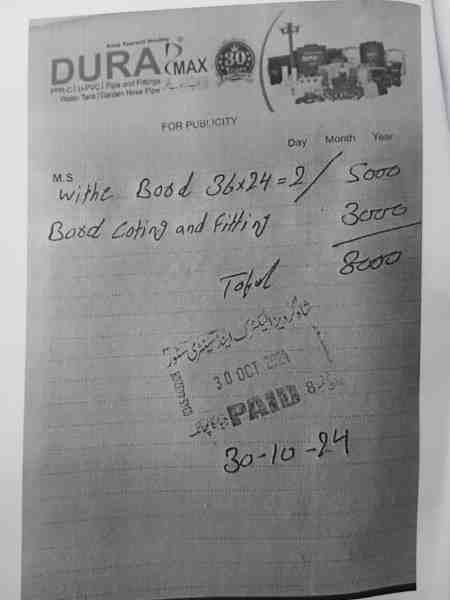 DURA MAX
30
PPR-C | U-PVC | Pipe and Fittings
Water Tank | Garden Hose Pipe
FOR PUBLICITY
Day Month Year
M.S
withe Bord 36x24=2/ 5000
Bord Coting and Fitting 3000
Total 8000
شاہ گردیز الیکٹرک اینڈ سینٹری سٹور
30 OCT 2024
PAID
30-10-24